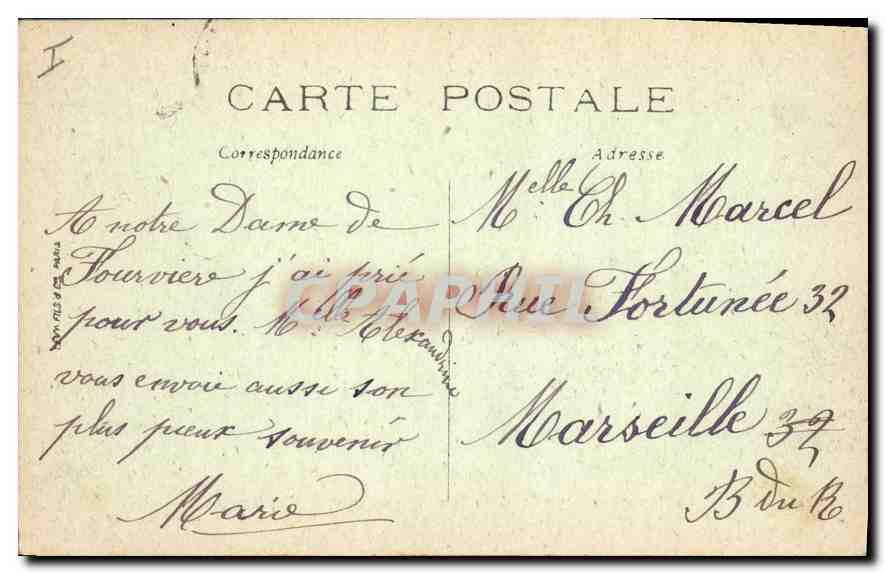 I
CARTE POSTALE
Correspondance
Adresse
A notre Dame de
Fourvière j'ai prié
pour vous. Melle Alexandrine
vous envoie aussi son
plus pieux souvenir
Marie
Melle Ch. Marcel
Rue Fortunée 32
Marseille 32
B du R
CPAPHIL